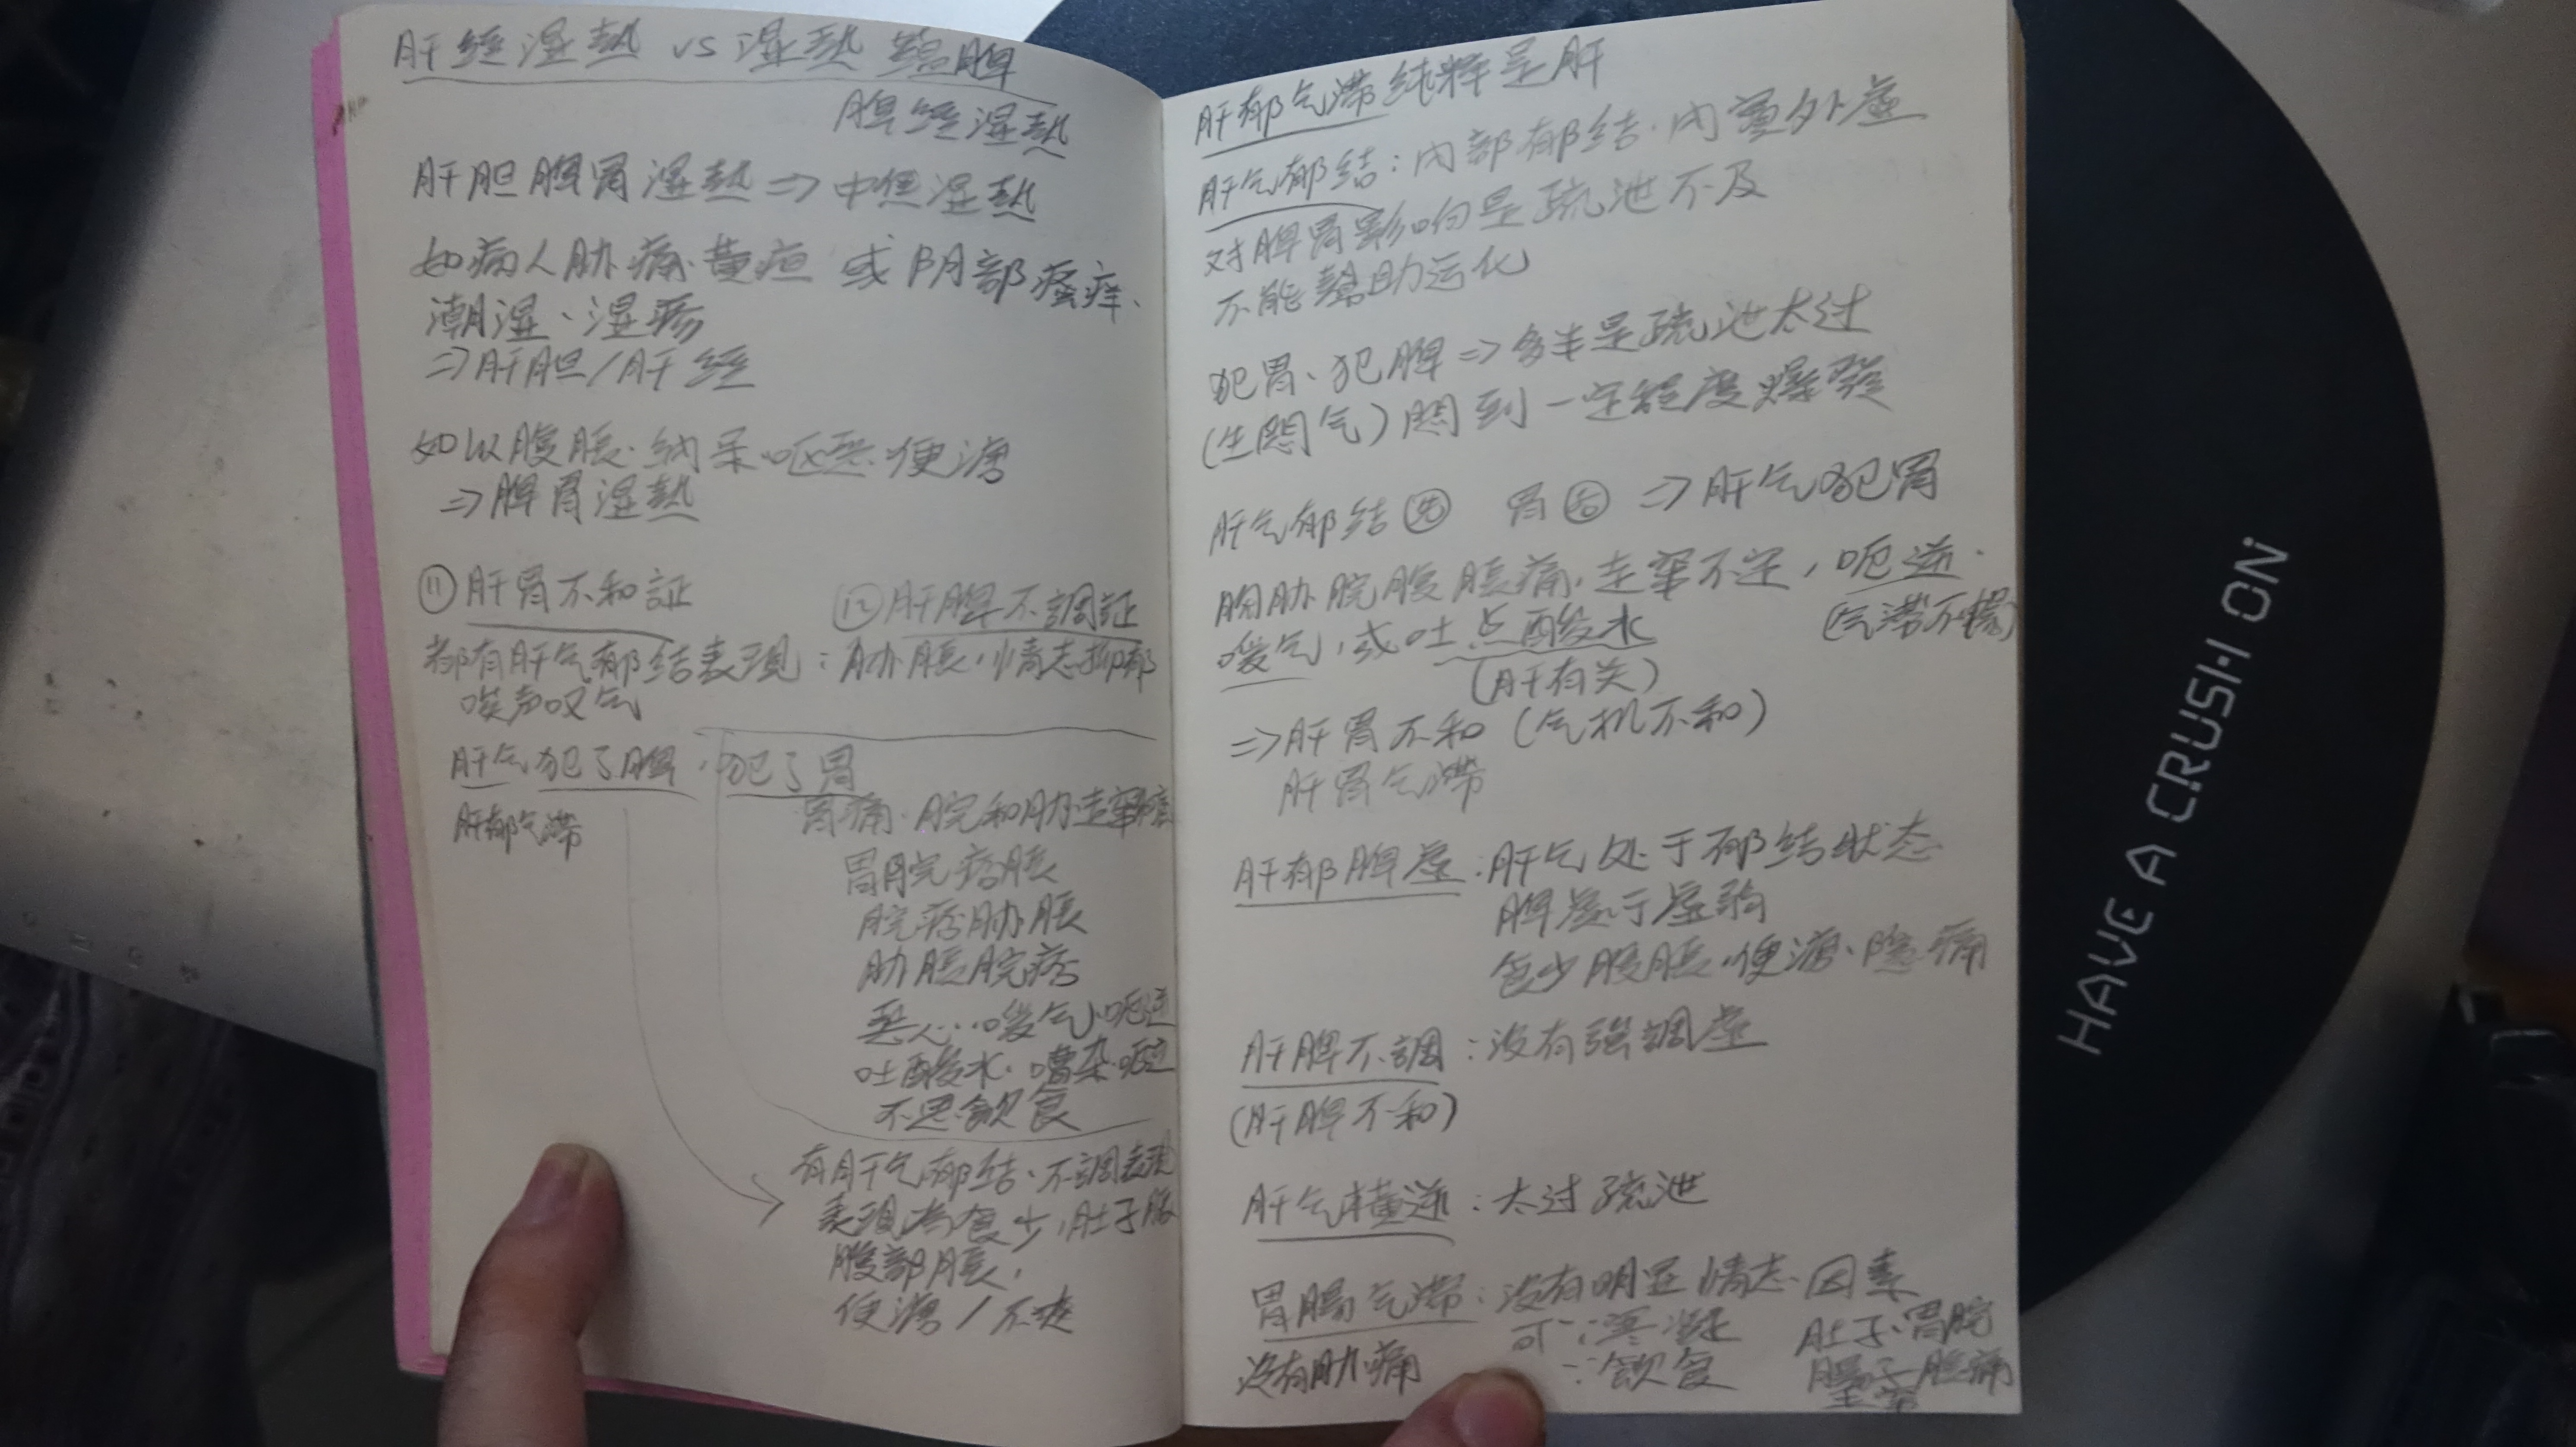 肝經湿熱 vs 湿熱蘊脾
脾經湿熱
肝胆脾胃湿熱 => 中焦湿熱
如病人胁痛、黄疸 或阴部瘙痒、
潮湿、湿疹
=> 肝胆/肝經
如以腹脹、纳呆、呕恶、便溏
=> 脾胃湿熱
⑪肝胃不和証
⑫肝脾不調証
都有肝气郁结表現：胁脹、情志抑郁
唉声叹气
肝气犯了脾、犯了胃
肝郁气滞
胃痛、脘和胁走窜痛
胃脘痞脹
脘痞胁脹
胁脹脘痞
恶心…嗳气、呃逆
吐酸水、嘈杂
不思飲食
有肝气郁结、不調表現
表現为食少，肚子脹
腹部脹，
便溏/不爽
肝郁气滞纯粹是肝
肝气郁结：内部郁结、内實外虚
对脾胃影响是疏泄不及
不能幫助运化
犯胃、犯脾 => 多半是疏泄太过
(生悶气) 悶到一定程度爆發
肝气郁结㊛ 胃㊨ => 肝气犯胃
胸胁脘腹脹痛、走窜不定，呃逆、
(气滞不暢)
嗳气，或吐点酸水
(肝有关)
=> 肝胃不和 (气机不和)
肝胃气滞
肝郁脾虚：肝气处于郁结状态
脾處于虚弱
食少腹脹、便溏、隐痛
肝脾不調：没有强調虚
(肝脾不和)
肝气橫逆：太过疏泄
胃腸气滞：没有明显情志因素
没有胁痛
可∵寒凝
∵飲食
肚子、胃脘
腸子脹痛
走窜
HAVE A CRUSH ON